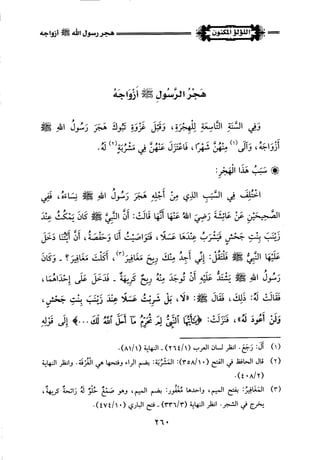 اللؤلؤ المكنون
هجر رسول الله ﷺ أزواجه
هَجْرُ الرَّسُولِ ﷺ أَزْوَاجَهُ
وَفِي السَّنَةِ التَّاسِعَةِ لِلْهِجْرَةِ، وَقَبْلَ غَزْوَةِ تَبُوكَ هَجَرَ رَسُولُ اللهِ ﷺ
أَزْوَاجَهُ، وَآلَى(١) مِنْهُنَّ شَهْرًا، فَاعْتَزَلَ عَنْهُنَّ فِي مَشْرُبَةٍ(٢) لَهُ.
سَبَبُ هَذَا الْهَجْرِ:
اخْتُلِفَ فِي السَّبَبِ الذِي مِنْ أَجْلِهِ هَجَرَ رَسُولُ اللهِ ﷺ نِسَاءَهُ، فَفِي
الصَّحِيحَيْنِ عَنْ عَائِشَةَ رَضِيَ اللهُ عَنْهَا أَنَّهَا قَالَتْ: أَنَّ النَّبِيَّ ﷺ كَانَ يَمْكُثُ عِنْدَ
زَيْنَبَ بِنْتِ جَحْشٍ فَيَشْرَبُ عِنْدَهَا عَسَلًا، فَتَوَاصَيْتُ أَنَا وَحَفْصَةُ، أَنَّ أَيَّتَنَا دَخَلَ
عَلَيْهَا النَّبِيُّ ﷺ فَلْتَقُلْ: إِنِّي أَجِدُ مِنْكَ رِيحَ مَغَافِيرَ(٣)، أَكَلْتَ مَغَافِيرَ؟ - وَكَانَ
رَسُولُ اللهِ ﷺ يَشْتَدُّ عَلَيْهِ أَنْ تُوجَدَ مِنْهُ رِيحٌ كَرِيهَةٌ - فَدَخَلَ عَلَى إِحْدَاهُمَا،
فَقَالَتْ لَهُ: ذَلِكَ، فَقَالَ ﷺ: «لَا، بَلْ شَرِبْتُ عَسَلًا عِنْدَ زَيْنَبَ بِنْتِ جَحْشٍ،
وَلَنْ أَعُودَ لَهُ»، فَنَزَلَتْ: ﴿يَٰٓأَيُّهَا ٱلنَّبِيُّ لِمَ تُحَرِّمُ مَآ أَحَلَّ ٱللَّهُ لَكَ...﴾ إِلَى قَوْلِهِ
(١) آلَى: . انظر لسان العرب (١/ ٢٦٤) - النهاية (١/ ٨١).
(٢) قال الحافظ في الفتح (١٠/ ٣٥٨): المَشْرُبَةُ: بضم الراء وفتحها هي الغُرفة. وانظر النهاية
(٢/ ٤٠٨).
(٣) المَغَافِيْرُ: بفتح الميم، واحدها مُغْفُور: بضم الميم، وهو صَمْغٌ حُلْوٌ لَهُ رَائحةٌ كريهةٌ،
يخرج في الشجر. انظر النهاية (٣/ ٣٣٦) - فتح الباري (١٠/ ٤٧٤).
٢٦٠